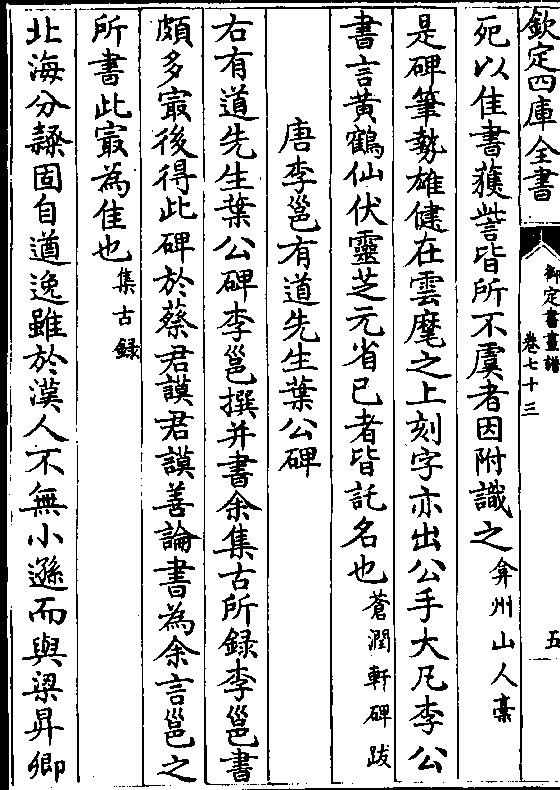 欽定四庫全書
御定書畫譜
卷七十三
五
死以佳書獲訾皆所不虞者因附識之弇州山人稾
是碑筆勢雄健在雲麾之上刻字亦出公手大凡李公
書言黃鶴仙伏靈芝元省已者皆託名也蒼潤軒碑跋
唐李邕有道先生葉公碑
右有道先生葉公碑李邕撰并書余集古所録李邕書
頗多㝡後得此碑於蔡君謨君謨善論書為余言邕之
所書此㝡為佳也集古録
北海分隸固自遒逸雖於漢人不無小遜而與梁昇卿